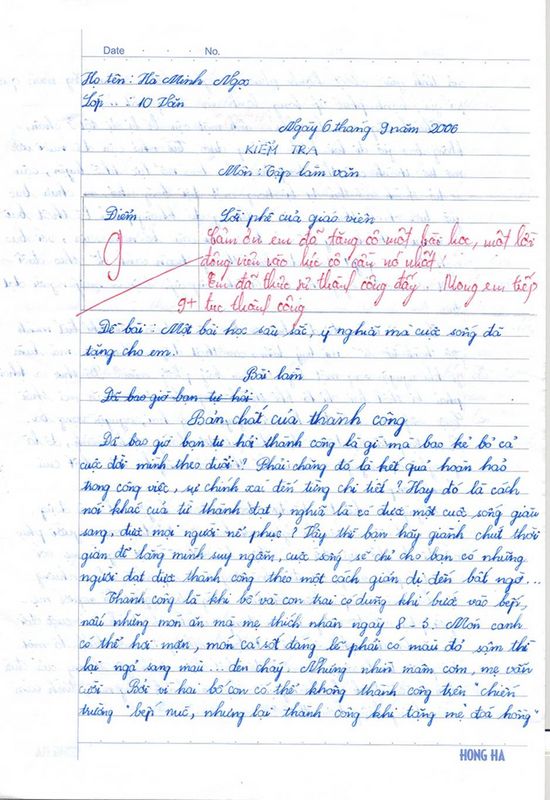 Date . . . No.
Họ tên: Hà Minh Ngọc
Lớp : 10 Văn
Ngày 6 tháng 9 năm 2006
KIỂM TRA
Môn: Tập làm văn
Điểm
Lời phê của giáo viên
9
Cảm ơn em đã tặng cô một bài học, một lời
động viên vào lúc cô cần nó nhất!
Em đã thực sự thành công đấy. Mong em tiếp
9+ tục thành công
Đề bài: Một bài học sâu sắc, ý nghĩa mà cuộc sống đã
tặng cho em.
Bài làm
Đã bao giờ bạn tự hỏi
Bản chất của thành công
Đã bao giờ bạn tự hỏi thành công là gì mà bao kẻ bỏ cả
cuộc đời mình theo đuổi? Phải chăng đó là kết quả hoàn hảo
trong công việc, sự chính xác đến từng chi tiết? Hay đó là cách
nói khác của từ thành đạt, nghĩa là có được một cuộc sống giàu
sang, được mọi người nể phục? Vậy thì bạn hãy giành chút thời
gian để lặng mình suy ngẫm, cuộc sống sẽ chỉ cho bạn có những
người đạt được thành công theo một cách giản dị đến bất ngờ...
Thành công là khi bố và con trai có dũng khí bước vào bếp,
nấu những món ăn mà mẹ thích nhân ngày 8 - 3. Món canh
có thể hơi mặn, món cá sốt đáng lẽ phải có màu đỏ sậm thì
lại ngả sang màu... đen cháy. Nhưng nhìn mâm cơm, mẹ vẫn
cười. Bởi vì hai bố con có thể không thành công trên "chiến
trường" bếp núc, nhưng lại thành công khi tặng mẹ "đoá hồng"
HONG HA